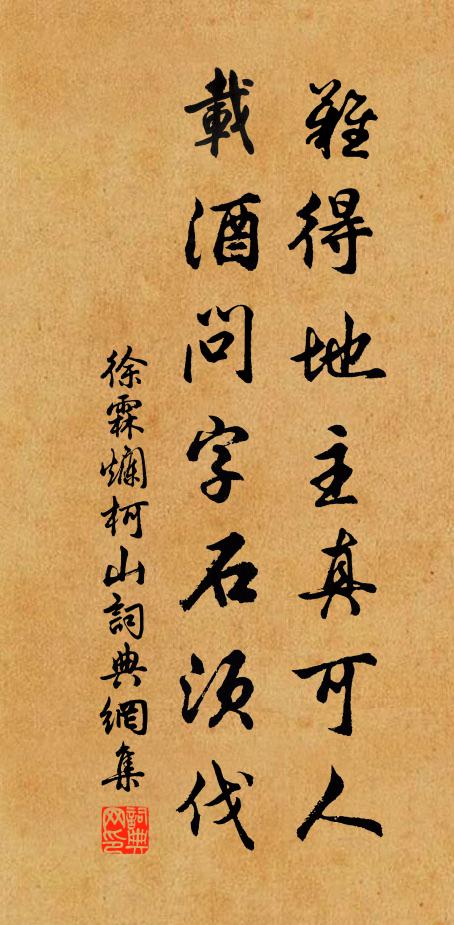 難得地主真可人
載酒問字石須伐
徐霖爛柯山詞典網集
詞典网印